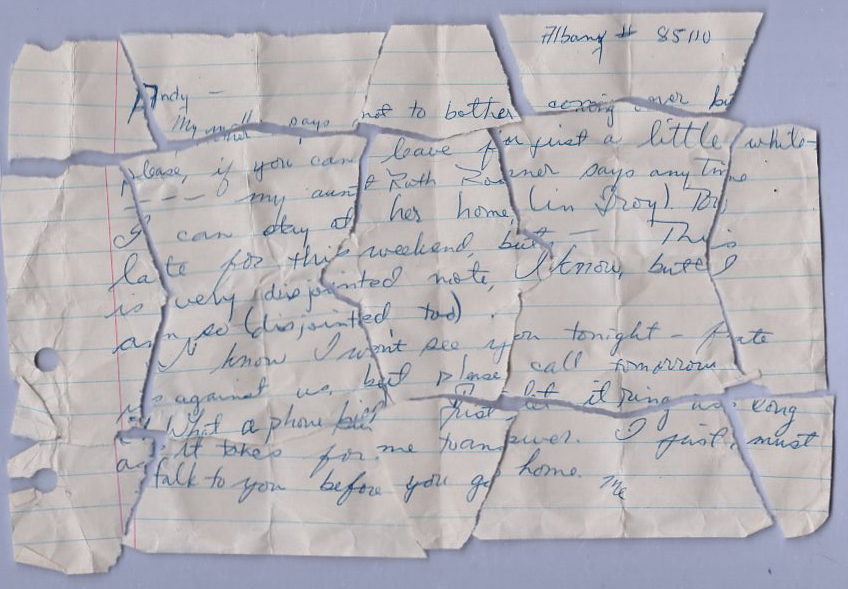 Albany # 85110
Andy —
My mother says not to bother coming over but
Please, if you can leave for just a little while—
---- my aunt Ruth says any time
I can stay at her home (in Troy). Too
late for this weekend, but — This
is very disjointed note, I know, but I
am so (disjointed too).
I know I won't see you tonight — fate
is against us, but please call tomorrow
What a phone bill Just let it ring as long
as it takes for me to answer. I just must
talk to you before you go home. Me